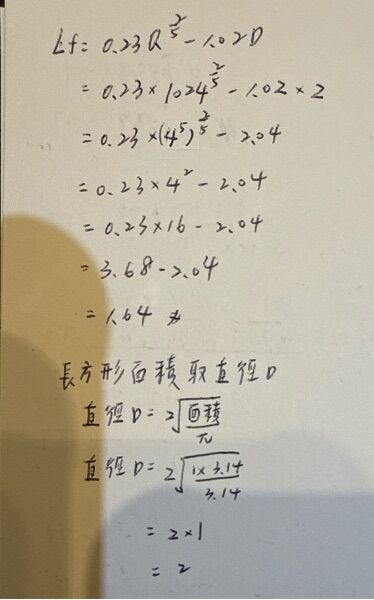 Lf = 0.23Q^(2/5) - 1.02D
= 0.23 × 1024^(2/5) - 1.02 × 2
= 0.23 × (4^5)^(2/5) - 2.04
= 0.23 × 4^2 - 2.04
= 0.23 × 16 - 2.04
= 3.68 - 2.04
= 1.64
長方形面積取直徑D
直徑D = 2√(面積/π)
直徑D = 2√(1×3.14/3.14)
= 2 × 1
= 2